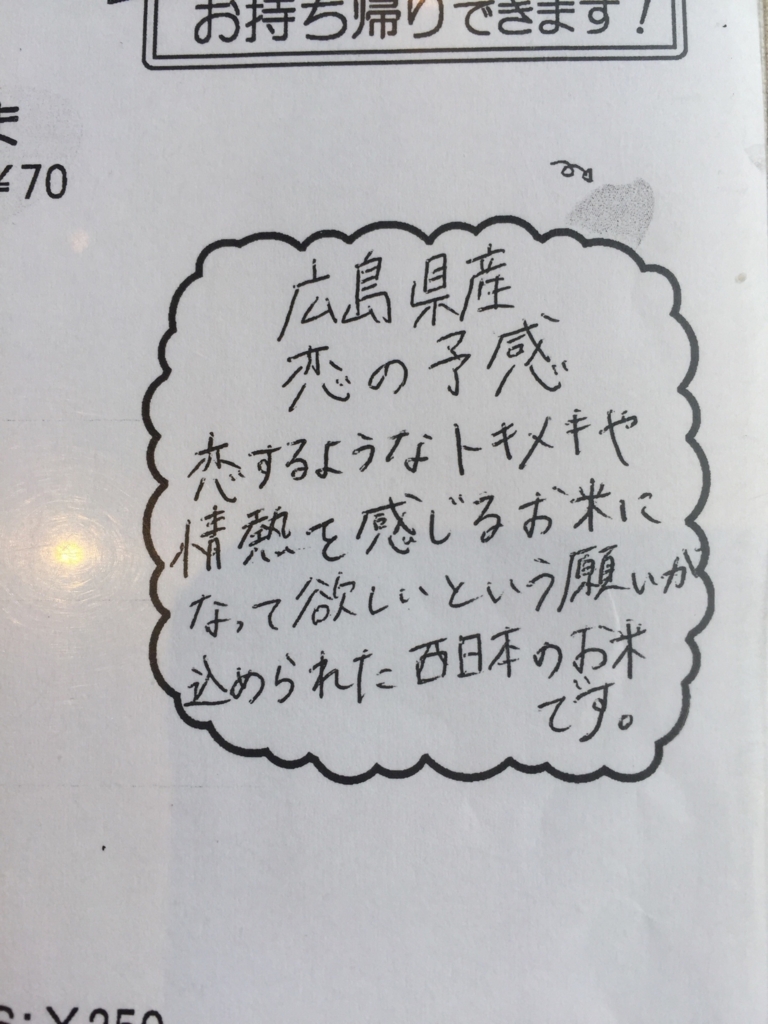 お持ち帰りできます!
¥70
広島県産
恋の予感
恋するようなトキメキや
情熱を感じるお米に
なって欲しいという願いが
込められた西日本のお米
です。
S:¥250